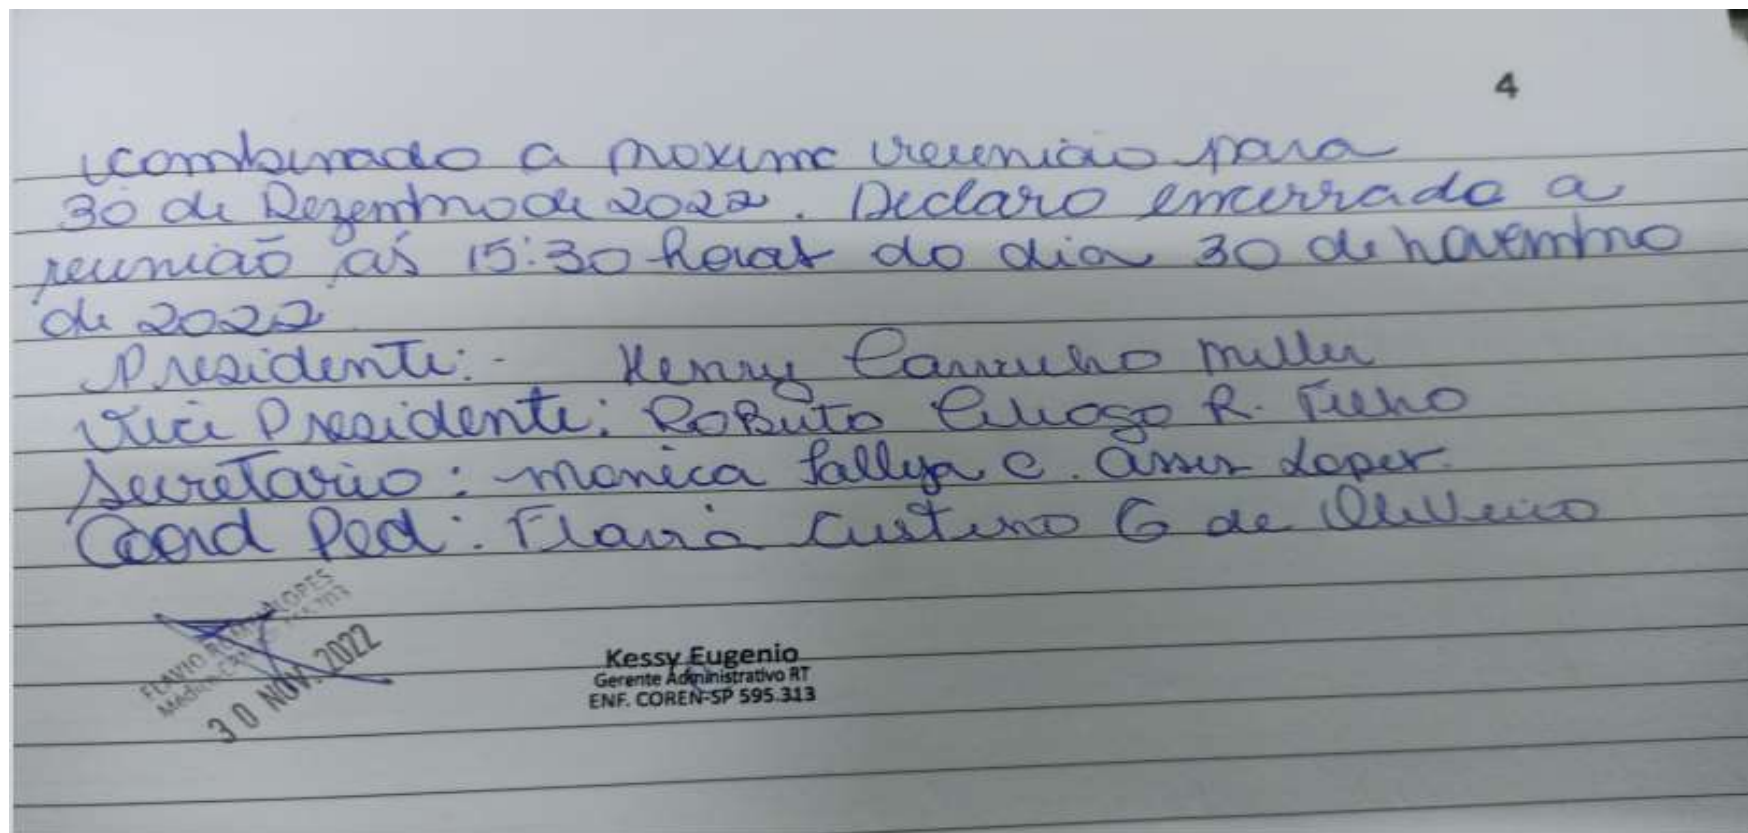 4
combinado a proxima reunião para
30 de Dezembro de 2022. Declaro encerrada a
reunião, ás 15:30 horas do dia 30 de novembro
de 2022.
Presidente:- Henry Muller
Vice Presidente: Roberto R. Filho
Secretario: Monica C. Assis Lopes.
Coord Ped: Flavia G de Oliveira
FLAVIO LOPES
30 NOV. 2022
Kessy Eugenio
Gerente Administrativo RT
ENF. COREN-SP 595.313